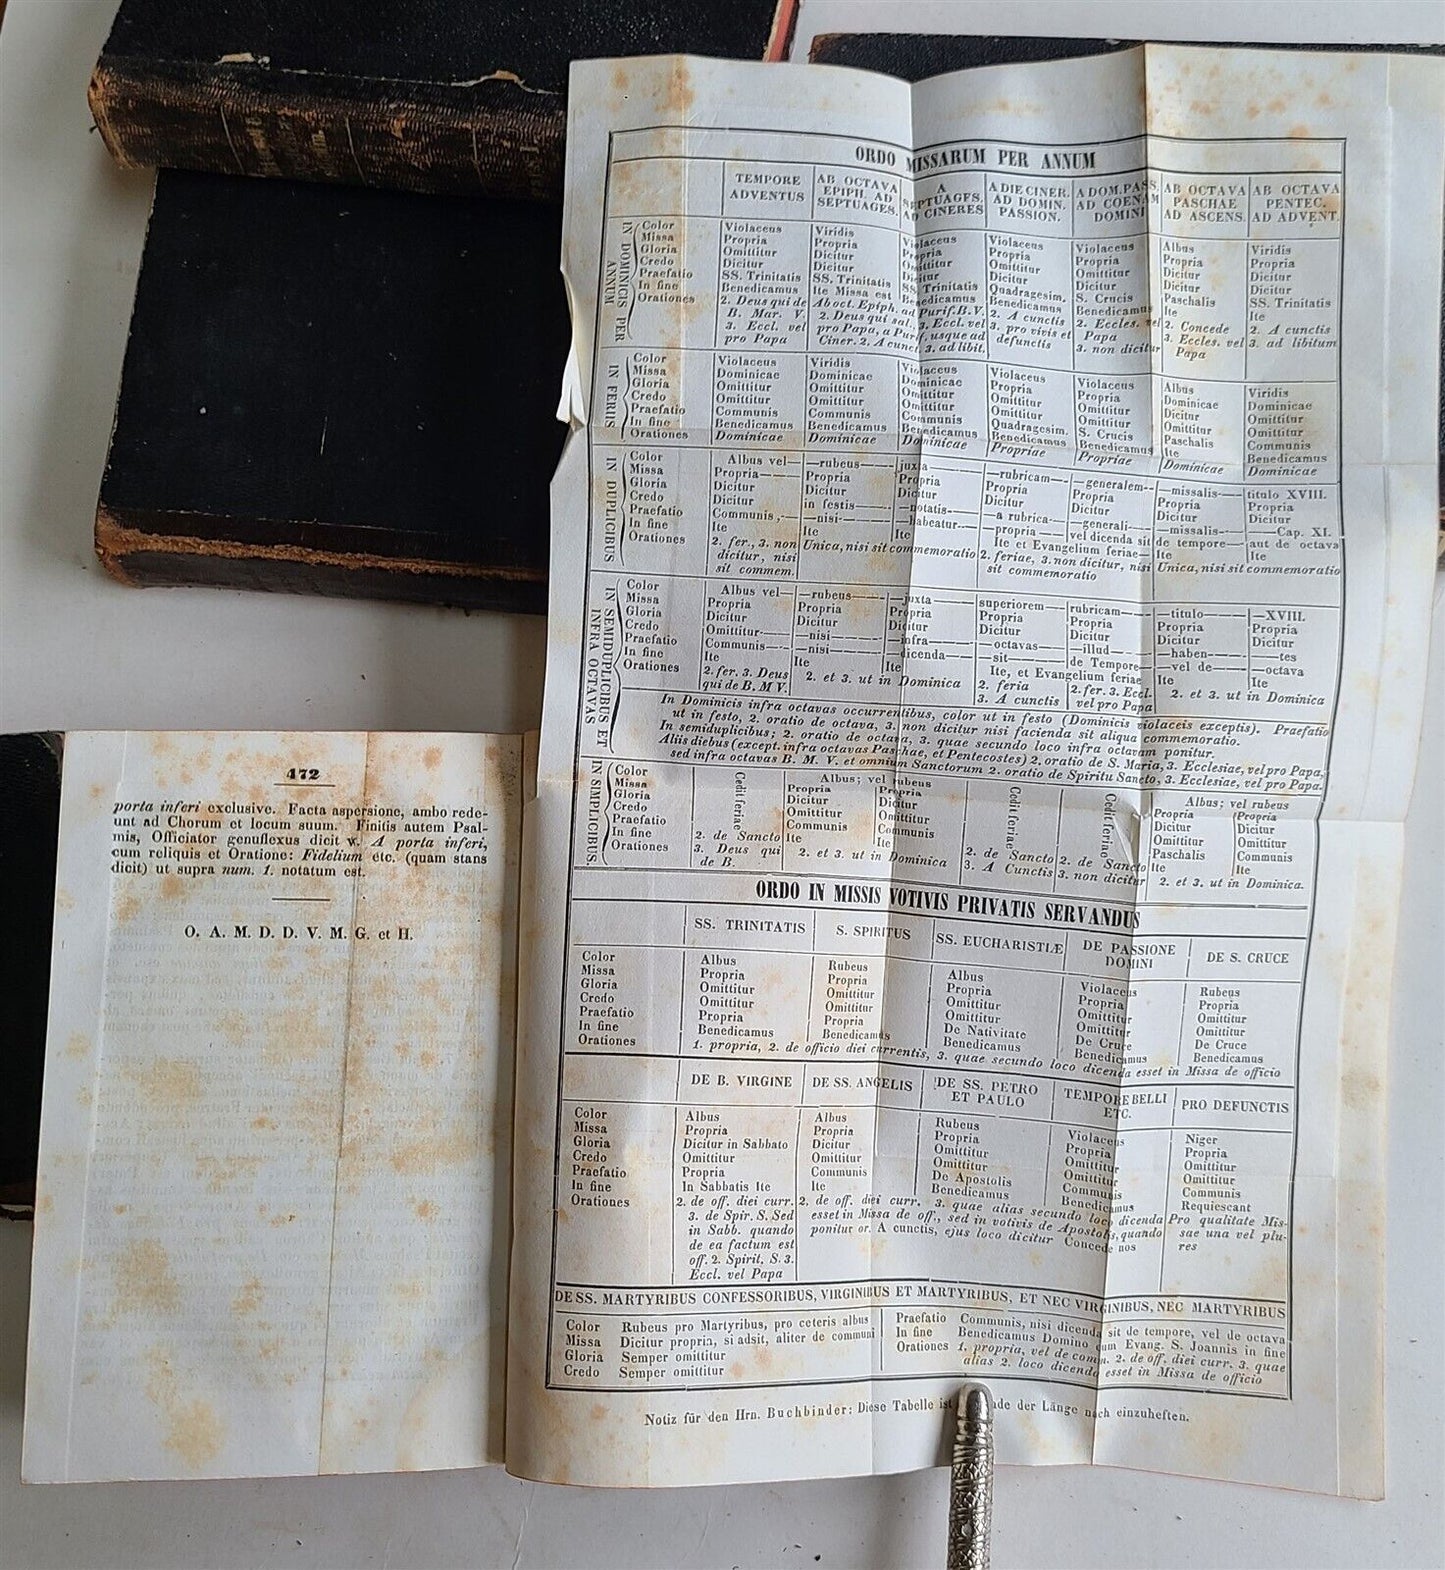 472
porta inferi exclusive. Facta aspersione, ambo rede-
unt ad Chorum et locum suum. Finitis autem Psal-
mis, Officiator genuflexus dicit ℣. A porta inferi,
cum reliquis et Oratione: Fidelium etc. (quam stans
dicit) ut supra num. 1. notatum est.
O. A. M. D. D. V. M. G. et H.
ORDO MISSARUM PER ANNUM
TEMPORE ADVENTUS
AB OCTAVA EPIPH. AD SEPTUAGES.
A SEPTUAGES. AD CINERES
A DIE CINER. AD DOMIN. PASSION.
A DOM. PASS. AD COENAM DOMINI
AB OCTAVA PASCHAE AD ASCENS.
AB OCTAVA PENTEC. AD ADVENT.
IN DOMINICIS PER ANNUM
Color Violaceus Viridis Violaceus Violaceus Violaceus Albus Viridis
Missa Propria Propria Propria Propria Propria Propria Propria
Gloria Omittitur Dicitur Omittitur Omittitur Omittitur Dicitur Dicitur
Credo Dicitur Dicitur Dicitur Dicitur Dicitur Dicitur Dicitur
Praefatio SS. Trinitatis SS. Trinitatis SS. Trinitatis Quadragesim. S. Crucis Paschalis SS. Trinitatis
In fine Benedicamus Ite Missa est Benedicamus Benedicamus Benedicamus Ite Ite
Orationes 2. Deus qui de B. Mar. V. 3. Eccl. vel pro Papa
Ab oct. Epiph. ad Purif. B. V.
2. Deus qui sal. 3. Eccl. vel
pro Papa, a Purif. usque ad
Ciner. 2. A cunct. 3. ad libit.
2. A cunctis 3. pro vivis et defunctis
2. Eccles. vel Papa 3. non dicitur
2. Concede 3. Eccles. vel Papa
2. A cunctis 3. ad libitum
IN FERIIS
Color Violaceus Viridis Violaceus Violaceus Violaceus Albus Viridis
Missa Dominicae Dominicae Dominicae Propria Propria Dominicae Dominicae
Gloria Omittitur Omittitur Omittitur Omittitur Omittitur Dicitur Omittitur
Credo Omittitur Omittitur Omittitur Omittitur Omittitur Omittitur Omittitur
Praefatio Communis Communis Communis Quadragesim. S. Crucis Paschalis Communis
In fine Benedicamus Benedicamus Benedicamus Benedicamus Benedicamus Ite Benedicamus
Orationes Dominicae Dominicae Dominicae Propriae Propriae Dominicae Dominicae
IN DUPLICIBUS
Color Albus vel— —rubeus— —juxta —rubricam— —generalem— —missalis— titulo XVIII.
Missa Propria Propria Propria Propria Propria Propria Propria
Gloria Dicitur Dicitur Dicitur Dicitur Dicitur Dicitur Dicitur
Credo Dicitur in festis— —notatis— —a rubrica— —generali— —missalis— —Cap. XI.
Praefatio Communis,— —nisi— —habeatur— —propria— vel dicenda sit de tempore— aut de octava
In fine Ite Ite Ite Ite et Evangelium feriae— Ite Ite
Orationes 2. fer., 3. non dicitur, nisi sit commem.
Unica, nisi sit commemoratio
2. feriae, 3. non dicitur, nisi sit commemoratio
Unica, nisi sit commemoratio
IN SEMIDUPLICIBUS ET INFRA OCTAVAS
Color Albus vel— —rubeus— —juxta— superiorem— rubricam— —titulo— —XVIII.
Missa Propria Propria Propria Propria Propria Propria Propria
Gloria Dicitur Dicitur Dicitur Dicitur Dicitur Dicitur Dicitur
Credo Omittitur— —nisi— —infra— —octavas— —illud— —haben— —tes
Praefatio Communis— —nisi— —dicenda— —sit— de Tempore— —vel de— —octava
In fine Ite Ite Ite Ite, et Evangelium feriae Ite Ite
Orationes 2. fer. 3. Deus qui de B. M V.
2. et 3. ut in Dominica
2. feria 3. A cunctis
2. fer. 3. Eccl. vel pro Papa
2. et 3. ut in Dominica
In Dominicis infra octavas occurrentibus, color ut in festo (Dominicis violaceis exceptis). Praefatio
ut in festo, 2. oratio de octava, 3. non dicitur nisi facienda sit aliqua commemoratio.
In semiduplicibus; 2. oratio de octava, 3. quae secundo loco infra octavam ponitur.
Aliis diebus (except. infra octavas Paschae, et Pentecostes) 2. oratio de S. Maria, 3. Ecclesiae, vel pro Papa,
sed infra octavas B. M. V. et omnium Sanctorum 2. oratio de Spiritu Sancto, 3. Ecclesiae, vel pro Papa.
IN SIMPLICIBUS.
Color Albus; vel rubeus Albus; vel rubeus
Missa Propria Propria Propria Propria
Gloria Dicitur Dicitur Dicitur Dicitur
Credo Omittitur Omittitur Omittitur Omittitur
Praefatio Communis Communis Paschalis Communis
In fine Ite Ite Ite Ite
Orationes
Cedit feriae
2. de Sancto 3. Deus qui de B.
2. et 3. ut in Dominica
Cedit feriae
2. de Sancto 3. A Cunctis
Cedit feriae
2. de Sancto 3. non dicitur
2. et 3. ut in Dominica.
ORDO IN MISSIS VOTIVIS PRIVATIS SERVANDUS
SS. TRINITATIS S. SPIRITUS SS. EUCHARISTIÆ DE PASSIONE DOMINI DE S. CRUCE
Color Albus Rubeus Albus Violaceus Rubeus
Missa Propria Propria Propria Propria Propria
Gloria Omittitur Omittitur Omittitur Omittitur Omittitur
Credo Omittitur Omittitur Omittitur Omittitur Omittitur
Praefatio Propria Propria De Nativitate De Cruce De Cruce
In fine Benedicamus Benedicamus Benedicamus Benedicamus Benedicamus
Orationes 1. propria, 2. de officio diei currentis, 3. quae secundo loco dicenda esset in Missa de officio
DE B. VIRGINE DE SS. ANGELIS DE SS. PETRO ET PAULO TEMPORE BELLI ETC. PRO DEFUNCTIS
Color Albus Albus Rubeus Violaceus Niger
Missa Propria Propria Propria Propria Propria
Gloria Dicitur in Sabbato Dicitur Omittitur Omittitur Omittitur
Credo Omittitur Omittitur Omittitur Omittitur Omittitur
Praefatio Propria Communis De Apostolis Communis Communis
In fine In Sabbatis Ite Ite Benedicamus Benedicamus Requiescant
Orationes 2. de off. diei curr. 3. de Spir. S. Sed in Sabb. quando de ea factum est off. 2. Spirit. S. 3. Eccl. vel Papa
2. de off. diei curr. 3. quae alias secundo loco dicenda
esset in Missa de off., sed in votivis de Apostolis, quando
ponitur or. A cunctis, ejus loco dicitur Concede nos
Pro qualitate Mis-
sae una vel plu-
res
DE SS. MARTYRIBUS CONFESSORIBUS, VIRGINIBUS ET MARTYRIBUS, ET NEC VIRGINIBUS, NEC MARTYRIBUS
Color Rubeus pro Martyribus, pro ceteris albus
Missa Dicitur propria, si adsit, aliter de communi
Gloria Semper omittitur
Credo Semper omittitur
Praefatio Communis, nisi dicenda sit de tempore, vel de octava
In fine Benedicamus Domino cum Evang. S. Joannis in fine
Orationes 1. propria, vel de comm. 2. de off. diei curr. 3. quae
alias 2. loco dicenda esset in Missa de officio
Notiz für den Hrn. Buchbinder: Diese Tabelle ist der Länge nach einzuheften.